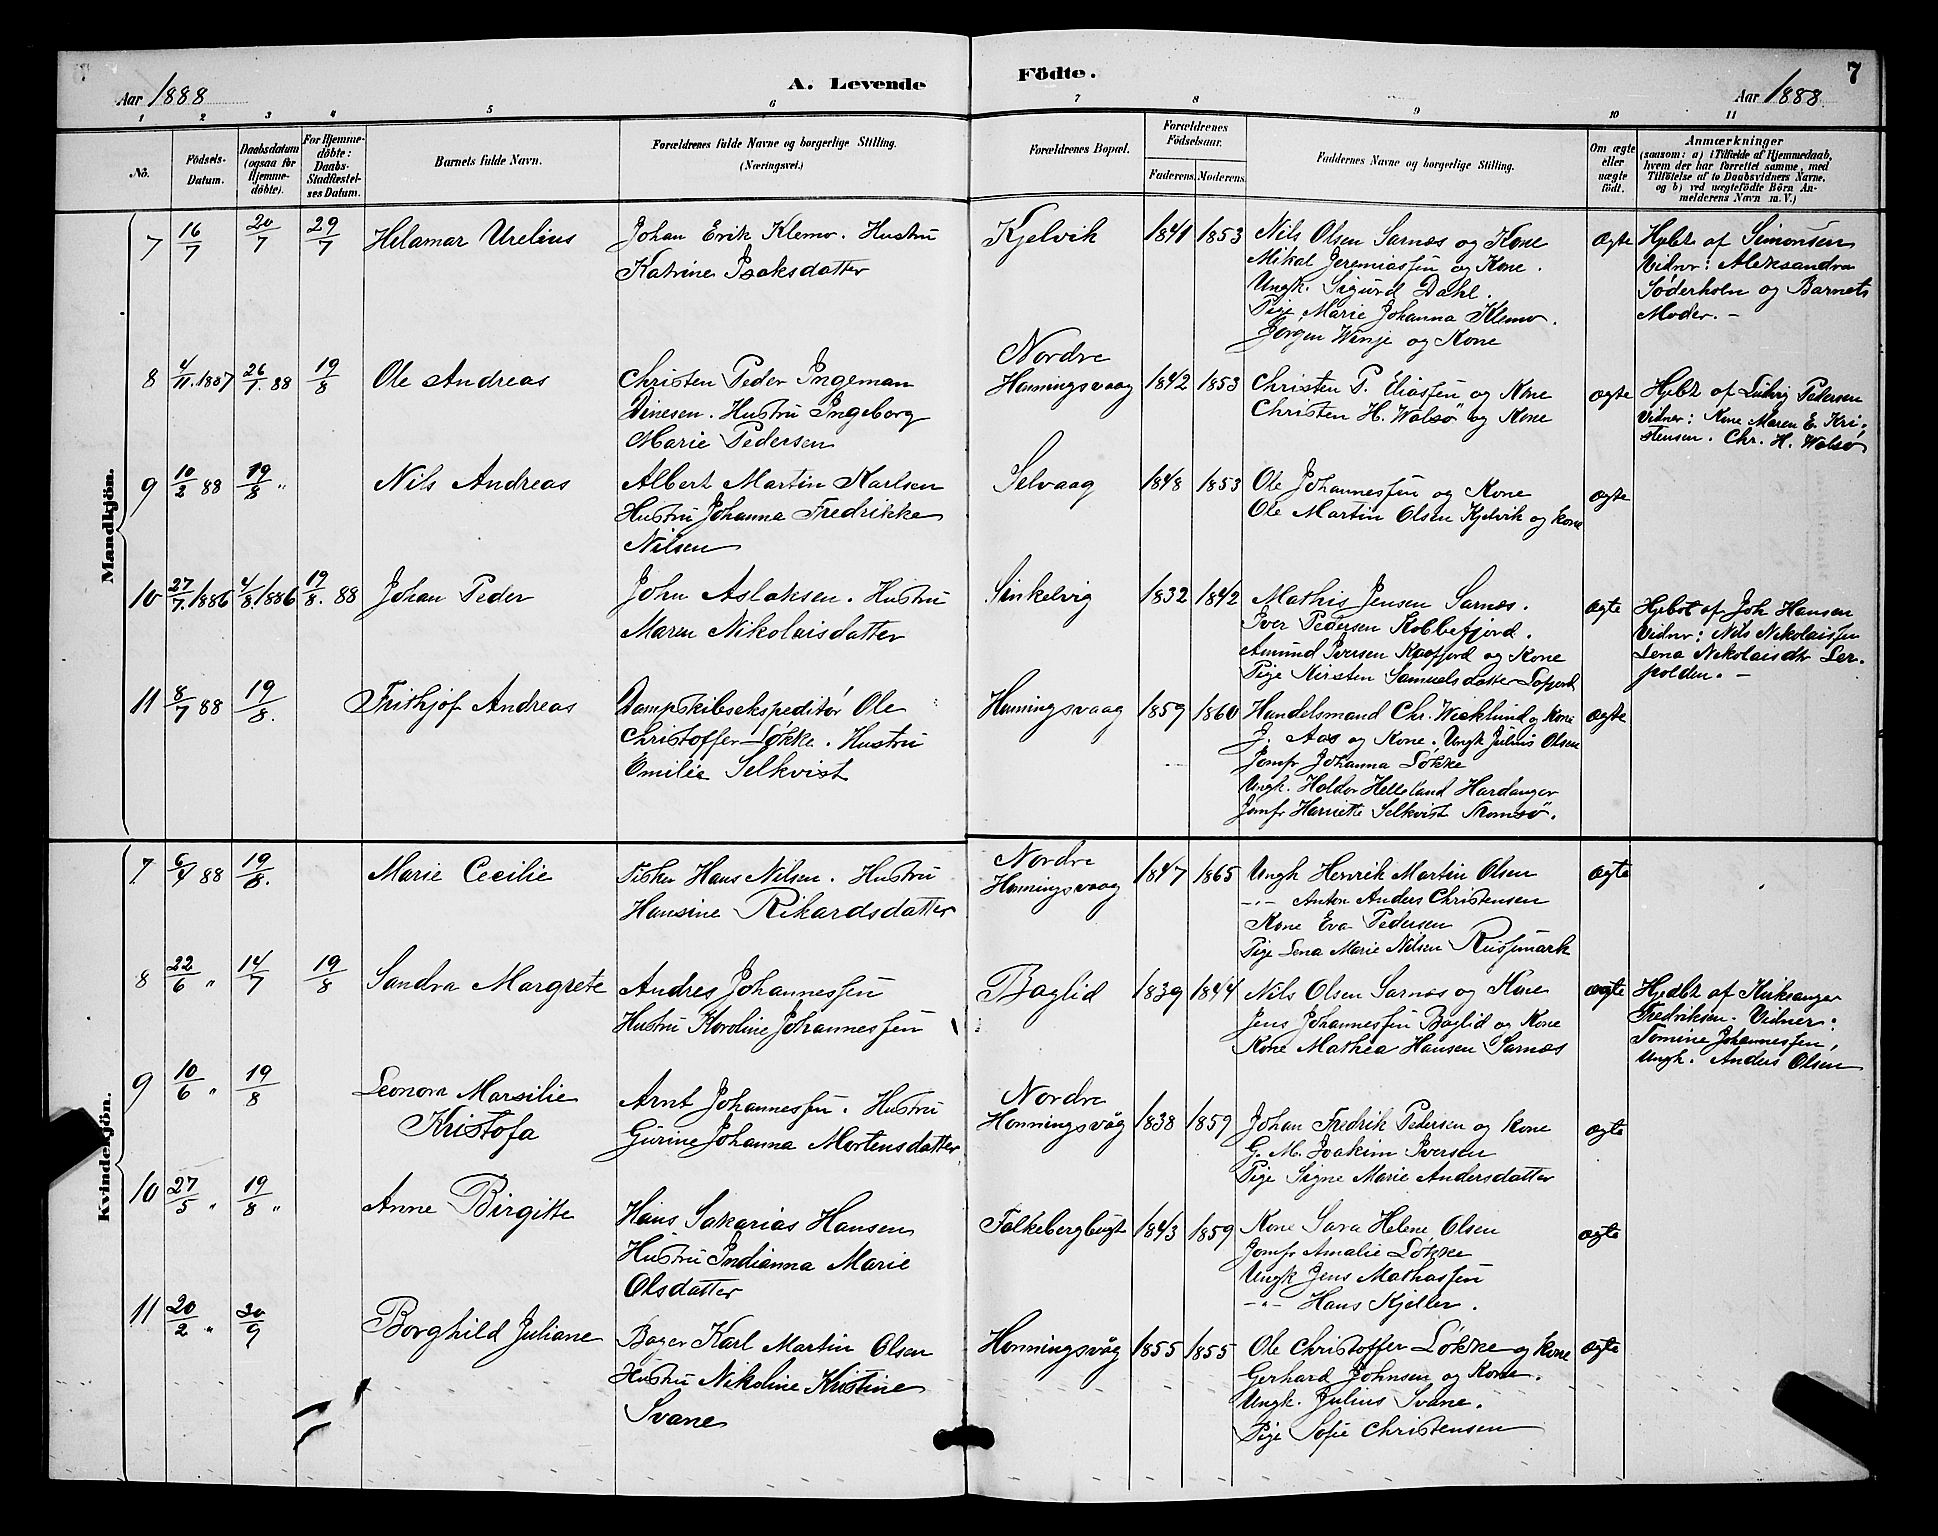 7
Aar 1888
A. Levende
Födte.
Aar 1888
1 2 3 4 5 6 7 8 9 10 11
No.
Födsels-
Datum.
Daabsdatum
(ogsaa for
Hjemme-
döbte).
For Hjemme-
döbte:
Daabs-
Stadfæstel-
ses Datum.
Barnets fulde Navn.
Forældrenes fulde Navne og borgerlige Stilling.
(Næringsvei.)
Forældrenes Bopæl.
Forældrenes
Födselsaar.
Faderens. Moderens.
Faddernes Navne og borgerlige Stilling.
Om ægte
eller
uægte
födt.
Anmærkninger
(saasom: a) i Tilfælde af Hjemmedaab,
hvem der har forrettet samme, med
Tilföielse af to Daabsvidners Navne,
og b) ved uægtefödte Börn An-
melderens Navn m. V.)
Mandkjön.
7 16/7 20/7 29/7 Helamar Urelius
Johan Erik Klemo. Hustru
Katrine Isaksdatter
Kjelvik 1841 1853
Nils Olsen Sarnæs og Kone
Mikal Jeremiassen og Kone.
Ungk. Sigurd Dahl.
Pige Marie Johanna Klemo.
Jørgen Winje og Kone
Ægte
Hjdbt af Simonsen
Vidner: Aleksandra
Söderholm og Barnets
Moder. –
8 4/11.1887 26/1.88 19/8 Ole Andreas
Christen Peder Ingeman
Dinesen. Hustru Ingeborg
Marie Pedersen
Nordre
Honningsvaag 1842 1853
Christen P. Eliassen og Kone
Christen H. Walsö og Kone
Ægte
Hjdbt af Ludvig Pedersen
Vidner: Kone Maren E. Kri-
stensen. Chr. H. Walsø
9 10/2 88 19/8 " Nils Andreas
Albert Martin Karlsen
Hustru Johanna Fredrikke
Nilsen
Selvaag 1848 1853
Ole Johannessen og Kone
Ole Martin Olsen Kjelvik og Kone
Ægte
10 27/7.1886 4/8.1886 19/8. 88 Johan Peder
John Aslaksen. Hustru
Maren Nikolaisdatter
Sinkelvig 1832 1842
Mathis Jensen Sarnæs.
Iver Pedersen Kobbefjord.
Amund Iversen Kaafjord og Kone
Pige Kirsten Samuelsdatter Lofjord
Ægte
Hjdbt af Joh Hansen
Vidner: Nils Nikolaissen
Lena Nikolaisdtr Ler-
polden. –
11 8/7 88 19/8. Frithjof Andreas
Dampskibsekspeditør Ole
Christoffer Løkke. Hustru
Emilie Selkvist
Honningsvaag 1859 1860
Handelsmand Chr. Wecklund og Kone
J. Aas og Kone. Ungk Julius Olsen
Jomfr Johanna Løkke
Ungk. Haldor Helleland Hardanger
Jomfr Harriette Selkvist Tromsö.
Ægte
Kvindekjön.
7 6/4 88 19/8. Marie Cecilie
Fisker Hans Nilsen. Hustru
Hansine Rikardsdatter
Nordre
Honningsvaag 1847 1865
Ungk Henrik Martin Olsen
–"– Anton Anders Christensen
Kone Eva Pedersen
Pige Lena Marie Nilsen Russmark
Ægte
8 22/6 " 14/7 19/8 Sandra Margrete
Andres Johannessen
Hustru Karoline Johannessen
Baglid 1839 1844
Nils Olsen Sarnæs og Kone
Jens Johannessen Baglid og Kone
Kone Mathea Hansen Sarnæs
Ægte
Hjedbt af Kirksanger
Fredriksen. Vidner:
Tomine Johannessen,
Ungk. Anders Olsen
9 10/6 " 19/8 Leonora Marsilie
Kristofa
Arnt Johannessen. Hustru
Gurine Johanna Mortensdatter
Nordre
Honningsvåg 1838 1859
Johan Fredrik Pedersen og Kone
G. M. Joakim Iversen
Pige Signe Marie Andersdatter
Ægte
10 27/5 " 19/8 " Anne Birgitte
Hans Sakarias Hansen
Hustru Indianna Marie
Olsdatter
Falkebergbugt 1843 1859
Kone Sara Helene Olsen
Jomfr Amalie Løkke
Ungk Jens Mathassen
–"– Hans Kjeller.
Ægte
11 20/2 " 30/9 Borghild Juliane
Bager Karl Martin Olsen
Hustru Nikoline Kristine
Svane
Honningsvåg 1855 1855
Ole Christoffer Løkke og Kone
Gerhard Johnsen og Kone.
Ungk. Julius Svane.
Pige Sofie Christensen
Ægte